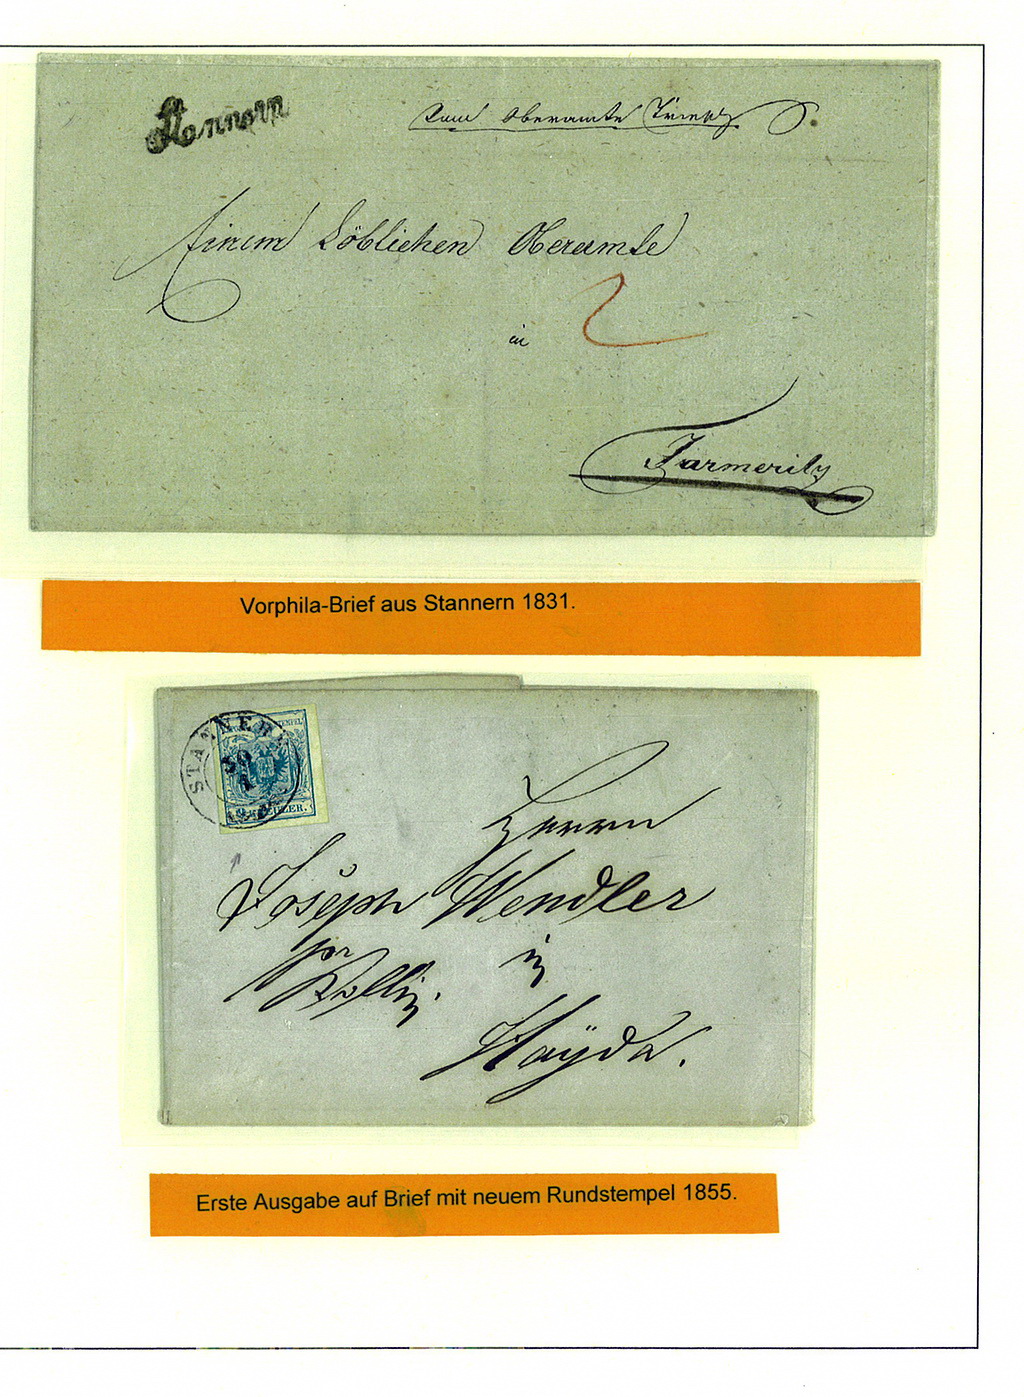 Stannern
Vom Oberamte
Einem Löblichen Oberamte
2
in
Jarmeritz
Vorphila-Brief aus Stannern 1831.
STANNERN
30
1
9 KREUZER.
Herrn
Joseph Wendler
pr
Kollin. in
Hayda.
Erste Ausgabe auf Brief mit neuem Rundstempel 1855.